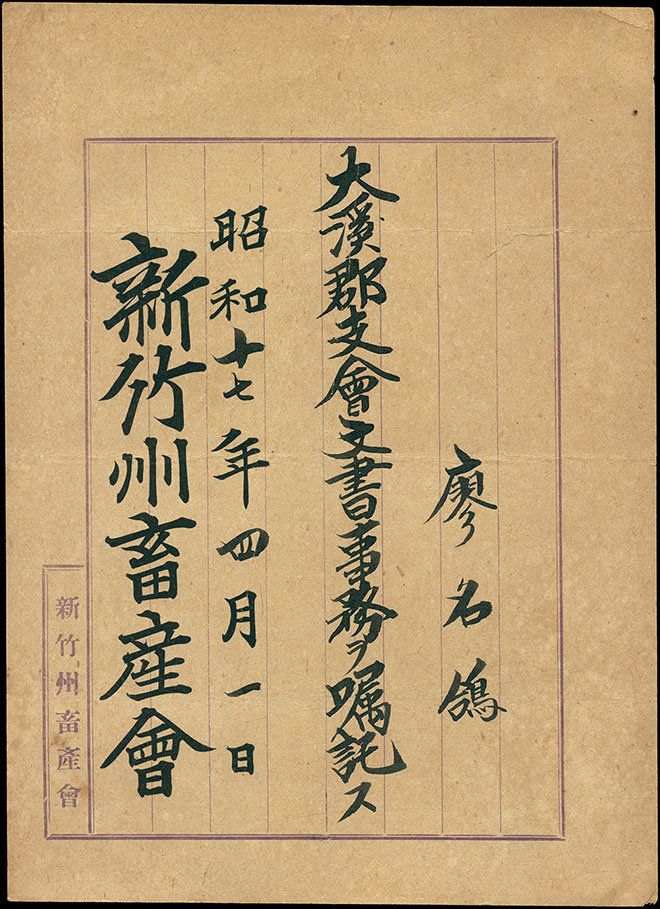 廖名鴿
大溪郡支會文書事務ヲ嘱託ス
昭和十七年四月一日
新竹州畜産會
新竹州畜產會